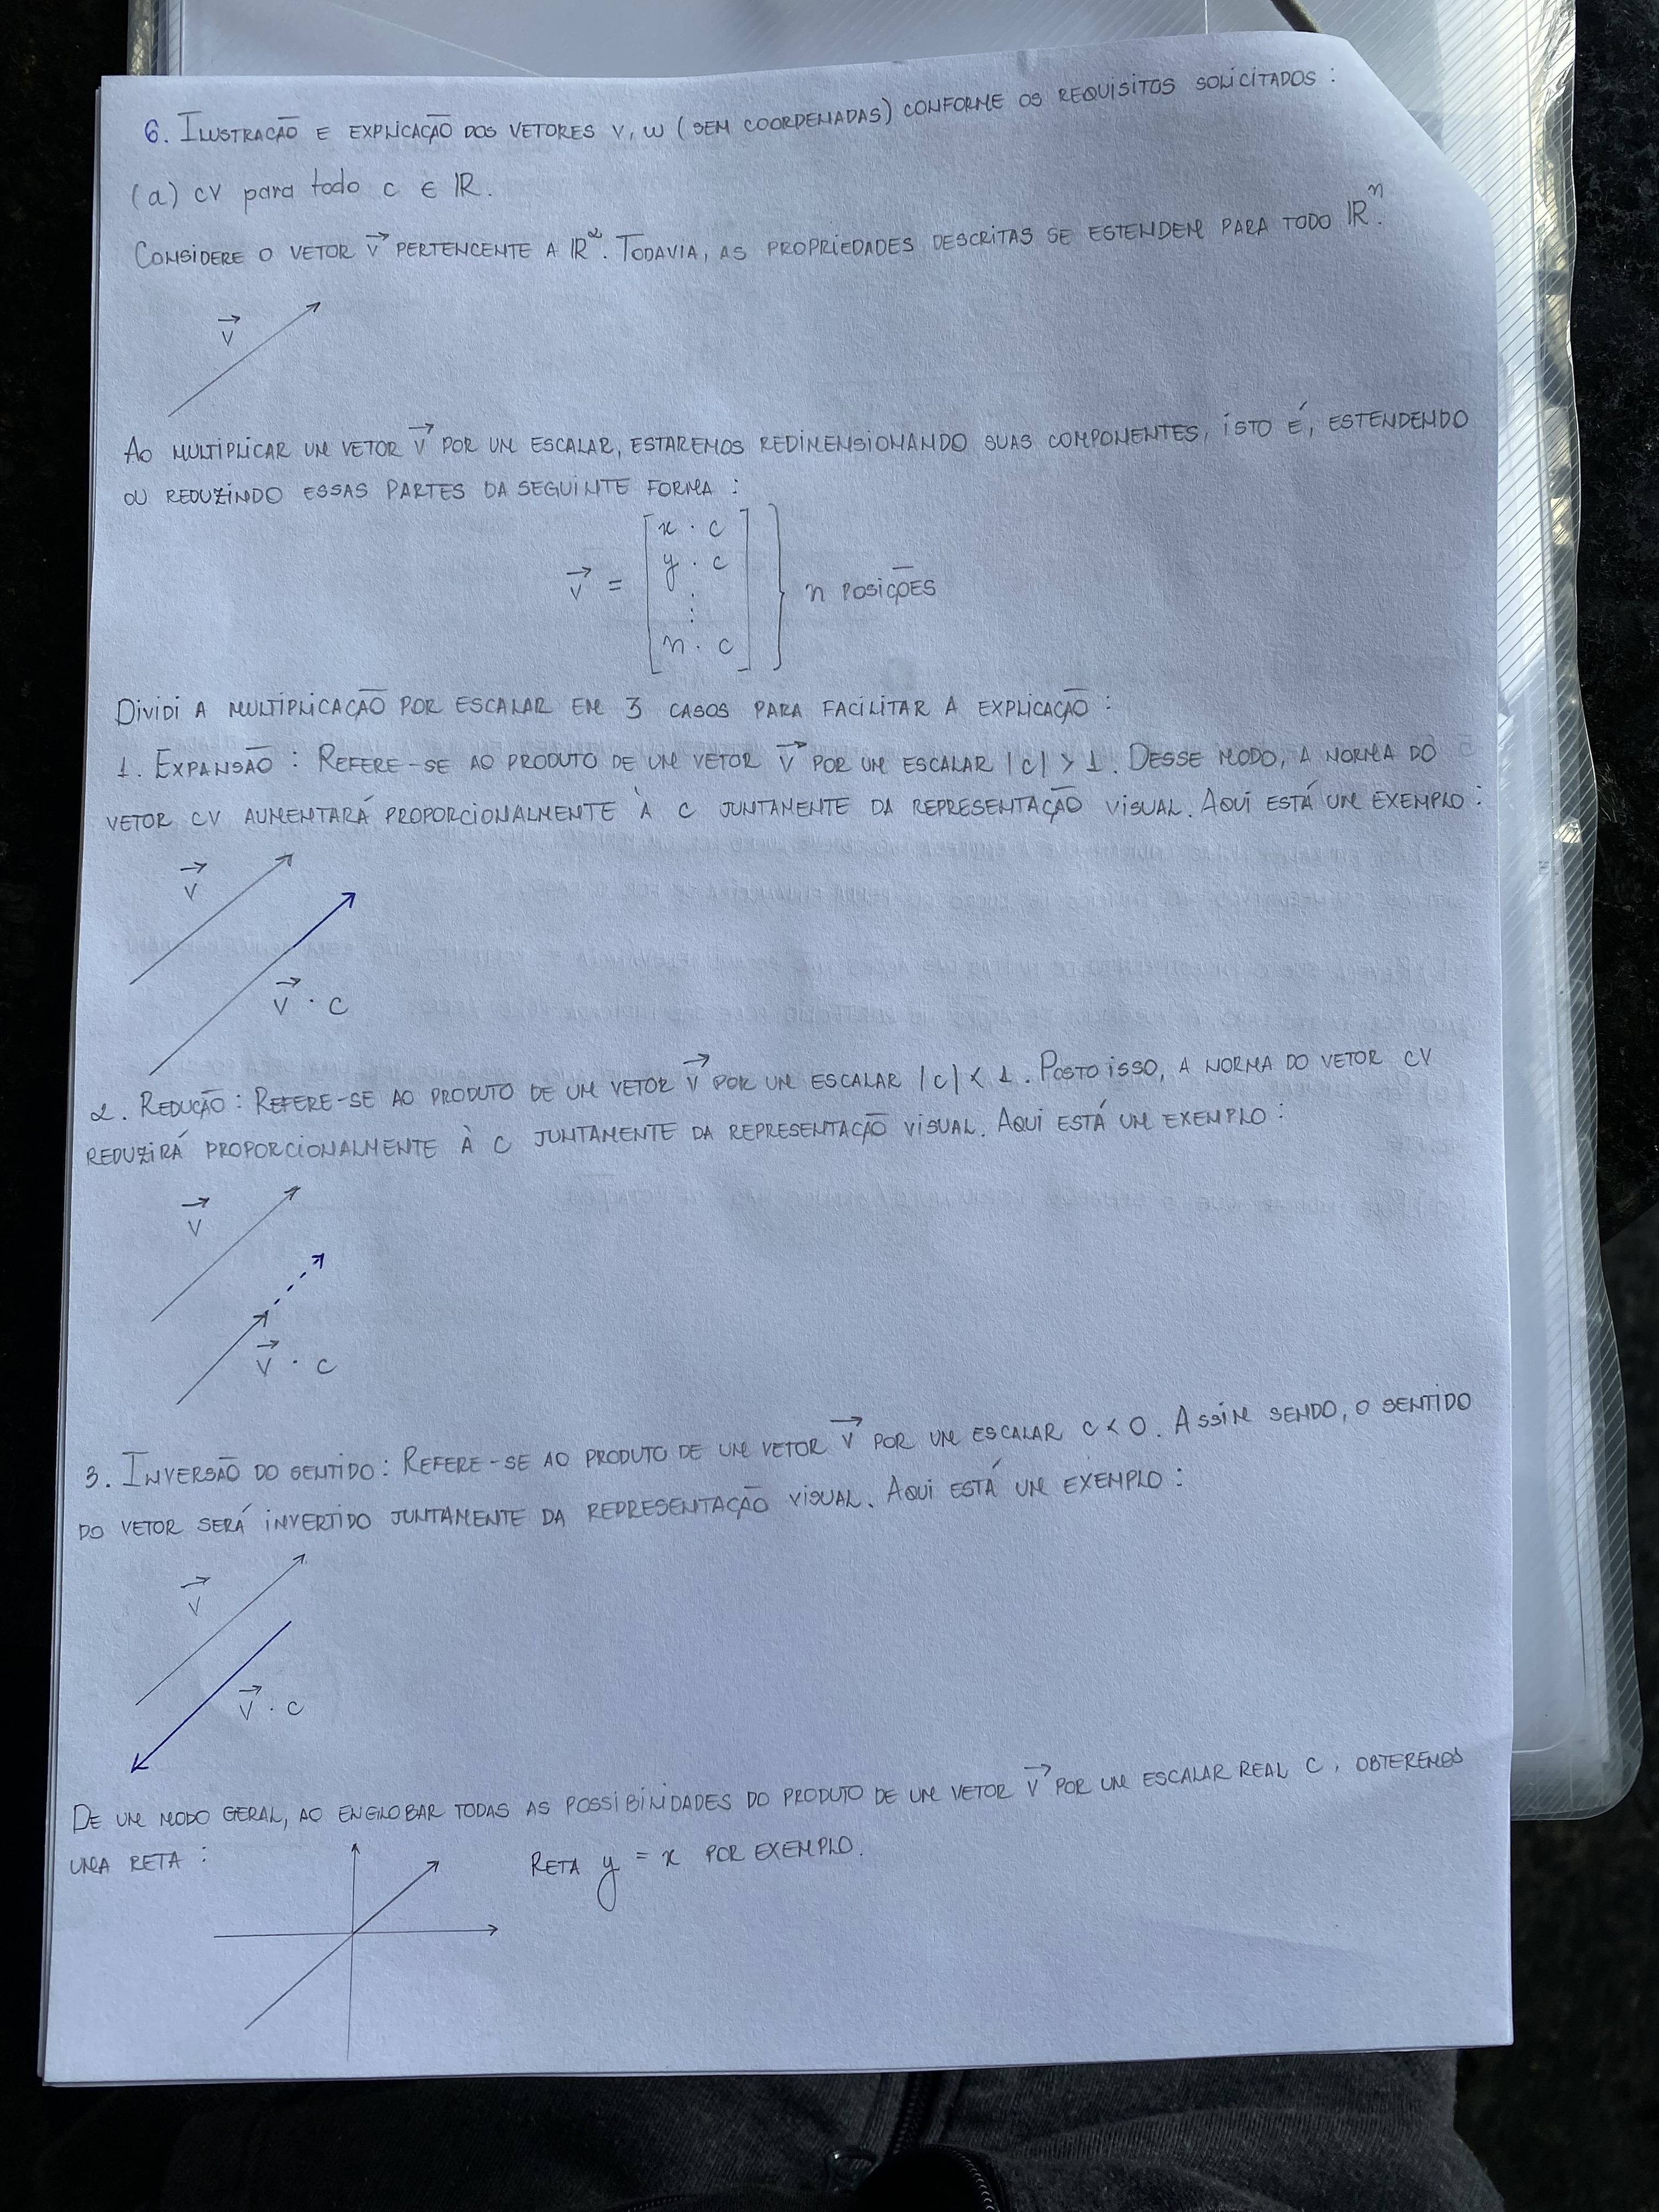 6. ILUSTRAÇÃO E EXPLICAÇÃO DOS VETORES V, W (SEM COORDENADAS) CONFORME OS REQUISITOS SOLICITADOS :
(a) cv para todo c ∈ ℝ.
CONSIDERE O VETOR v⃗ PERTENCENTE A ℝ². TODAVIA, AS PROPRIEDADES DESCRITAS SE ESTENDEM PARA TODO ℝⁿ.
v⃗
AO MULTIPLICAR UM VETOR v⃗ POR UM ESCALAR, ESTAREMOS REDIMENSIONANDO SUAS COMPONENTES, ISTO É, ESTENDENDO
OU REDUZINDO ESSAS PARTES DA SEGUINTE FORMA :
x · c
y · c
v⃗ = ⋮ } n POSIÇÕES
n · c
DIVIDI A MULTIPLICAÇÃO POR ESCALAR EM 3 CASOS PARA FACILITAR A EXPLICAÇÃO :
1. EXPANSÃO : REFERE-SE AO PRODUTO DE UM VETOR v⃗ POR UM ESCALAR |c| > 1. DESSE MODO, A NORMA DO
VETOR CV AUMENTARÁ PROPORCIONALMENTE À C JUNTAMENTE DA REPRESENTAÇÃO VISUAL. AQUI ESTÁ UM EXEMPLO :
v⃗
v⃗ · c
2. REDUÇÃO : REFERE-SE AO PRODUTO DE UM VETOR v⃗ POR UM ESCALAR |c| < 1. POSTO ISSO, A NORMA DO VETOR CV
REDUZIRÁ PROPORCIONALMENTE À C JUNTAMENTE DA REPRESENTAÇÃO VISUAL. AQUI ESTÁ UM EXEMPLO :
v⃗
v⃗ · c
3. INVERSÃO DO SENTIDO : REFERE-SE AO PRODUTO DE UM VETOR v⃗ POR UM ESCALAR C < 0. ASSIM SENDO, O SENTIDO
DO VETOR SERÁ INVERTIDO JUNTAMENTE DA REPRESENTAÇÃO VISUAL. AQUI ESTÁ UM EXEMPLO :
v⃗
v⃗ · c
DE UM MODO GERAL, AO ENGLOBAR TODAS AS POSSIBILIDADES DO PRODUTO DE UM VETOR v⃗ POR UM ESCALAR REAL C, OBTEREMOS
UMA RETA :
RETA y = x POR EXEMPLO.